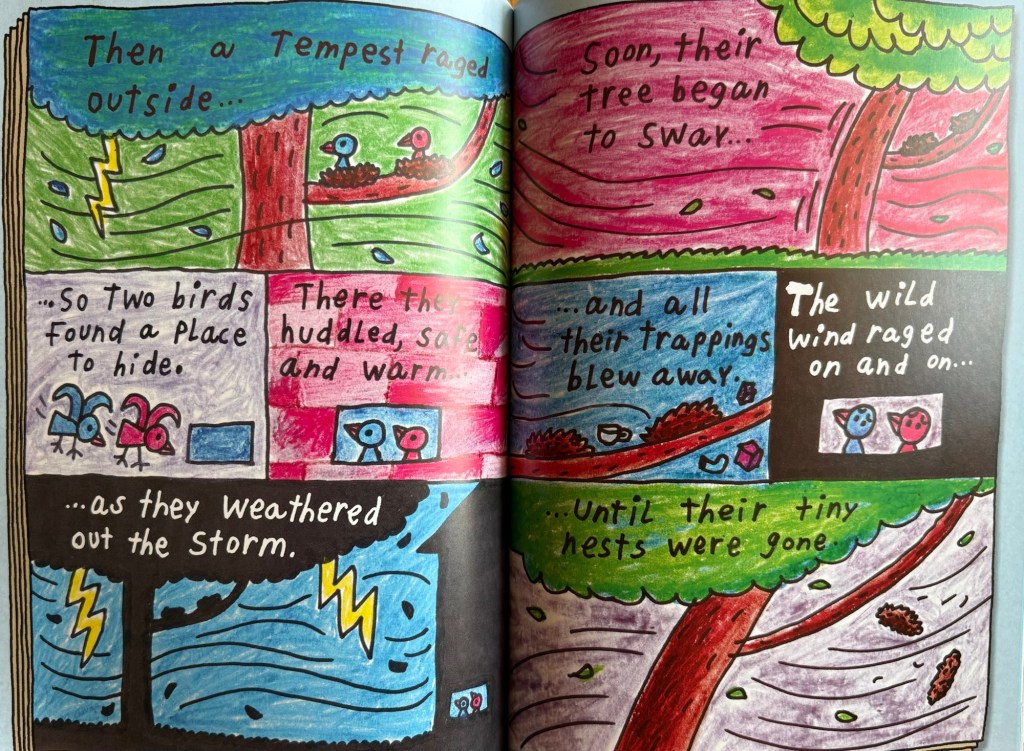 Then a Tempest raged
outside...
...So two birds
found a place
to hide.
There they
huddled, safe
and warm...
...as they weathered
out the storm.
Soon, their
tree began
to sway...
...and all
their trappings
blew away.
The wild
wind raged
on and on...
...Until their tiny
nests were gone.